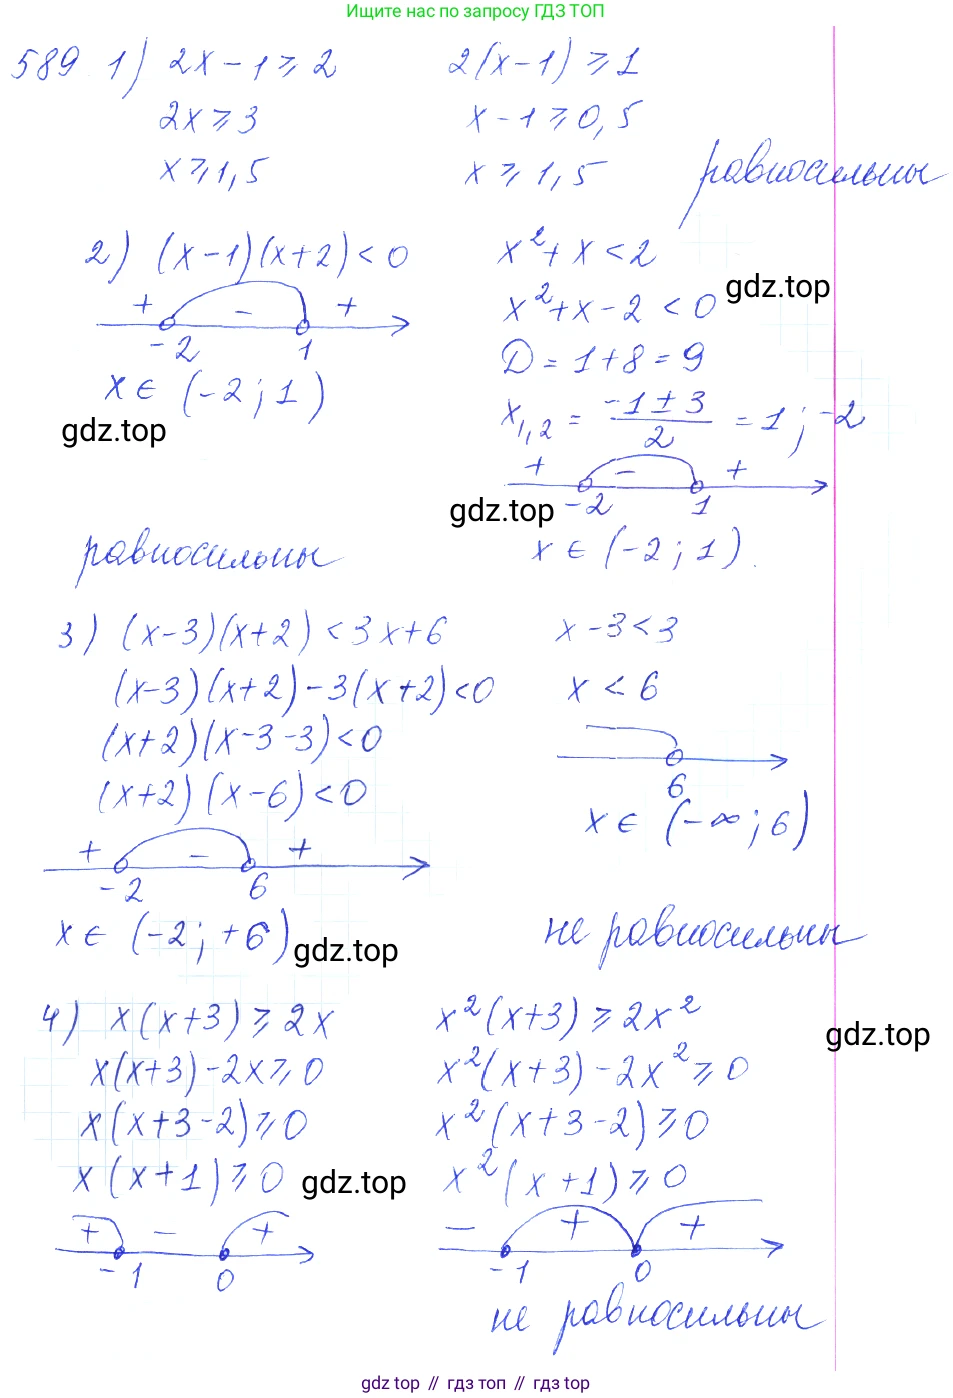 Ищите нас по запросу ГДЗ ТОП
589 1) 2x - 1 ⩾ 2
2x ⩾ 3
x ⩾ 1,5
2(x - 1) ⩾ 1
x - 1 ⩾ 0,5
x ⩾ 1,5
равносильны
2) (x - 1)(x + 2) < 0
+ - +
-2 1
x ∈ (-2; 1)
gdz.top
x² + x < 2
gdz.top
x² + x - 2 < 0
D = 1 + 8 = 9
x₁,₂ = (-1 ± 3)/2 = 1; -2
+ - +
gdz.top
-2 1
x ∈ (-2; 1).
равносильны
3) (x - 3)(x + 2) < 3x + 6
(x - 3)(x + 2) - 3(x + 2) < 0
(x + 2)(x - 3 - 3) < 0
(x + 2)(x - 6) < 0
+ - +
-2 6
x ∈ (-2; +6)
gdz.top
x - 3 < 3
x < 6
6
x ∈ (-∞; 6)
не равносильны
4) x(x + 3) ⩾ 2x
x(x + 3) - 2x ⩾ 0
x(x + 3 - 2) ⩾ 0
x(x + 1) ⩾ 0
gdz.top
+ - +
-1 0
x²(x + 3) ⩾ 2x²
gdz.top
x²(x + 3) - 2x² ⩾ 0
x²(x + 3 - 2) ⩾ 0
x²(x + 1) ⩾ 0
- + +
-1 0
не равносильны
gdz.top // гдз топ // gdz top